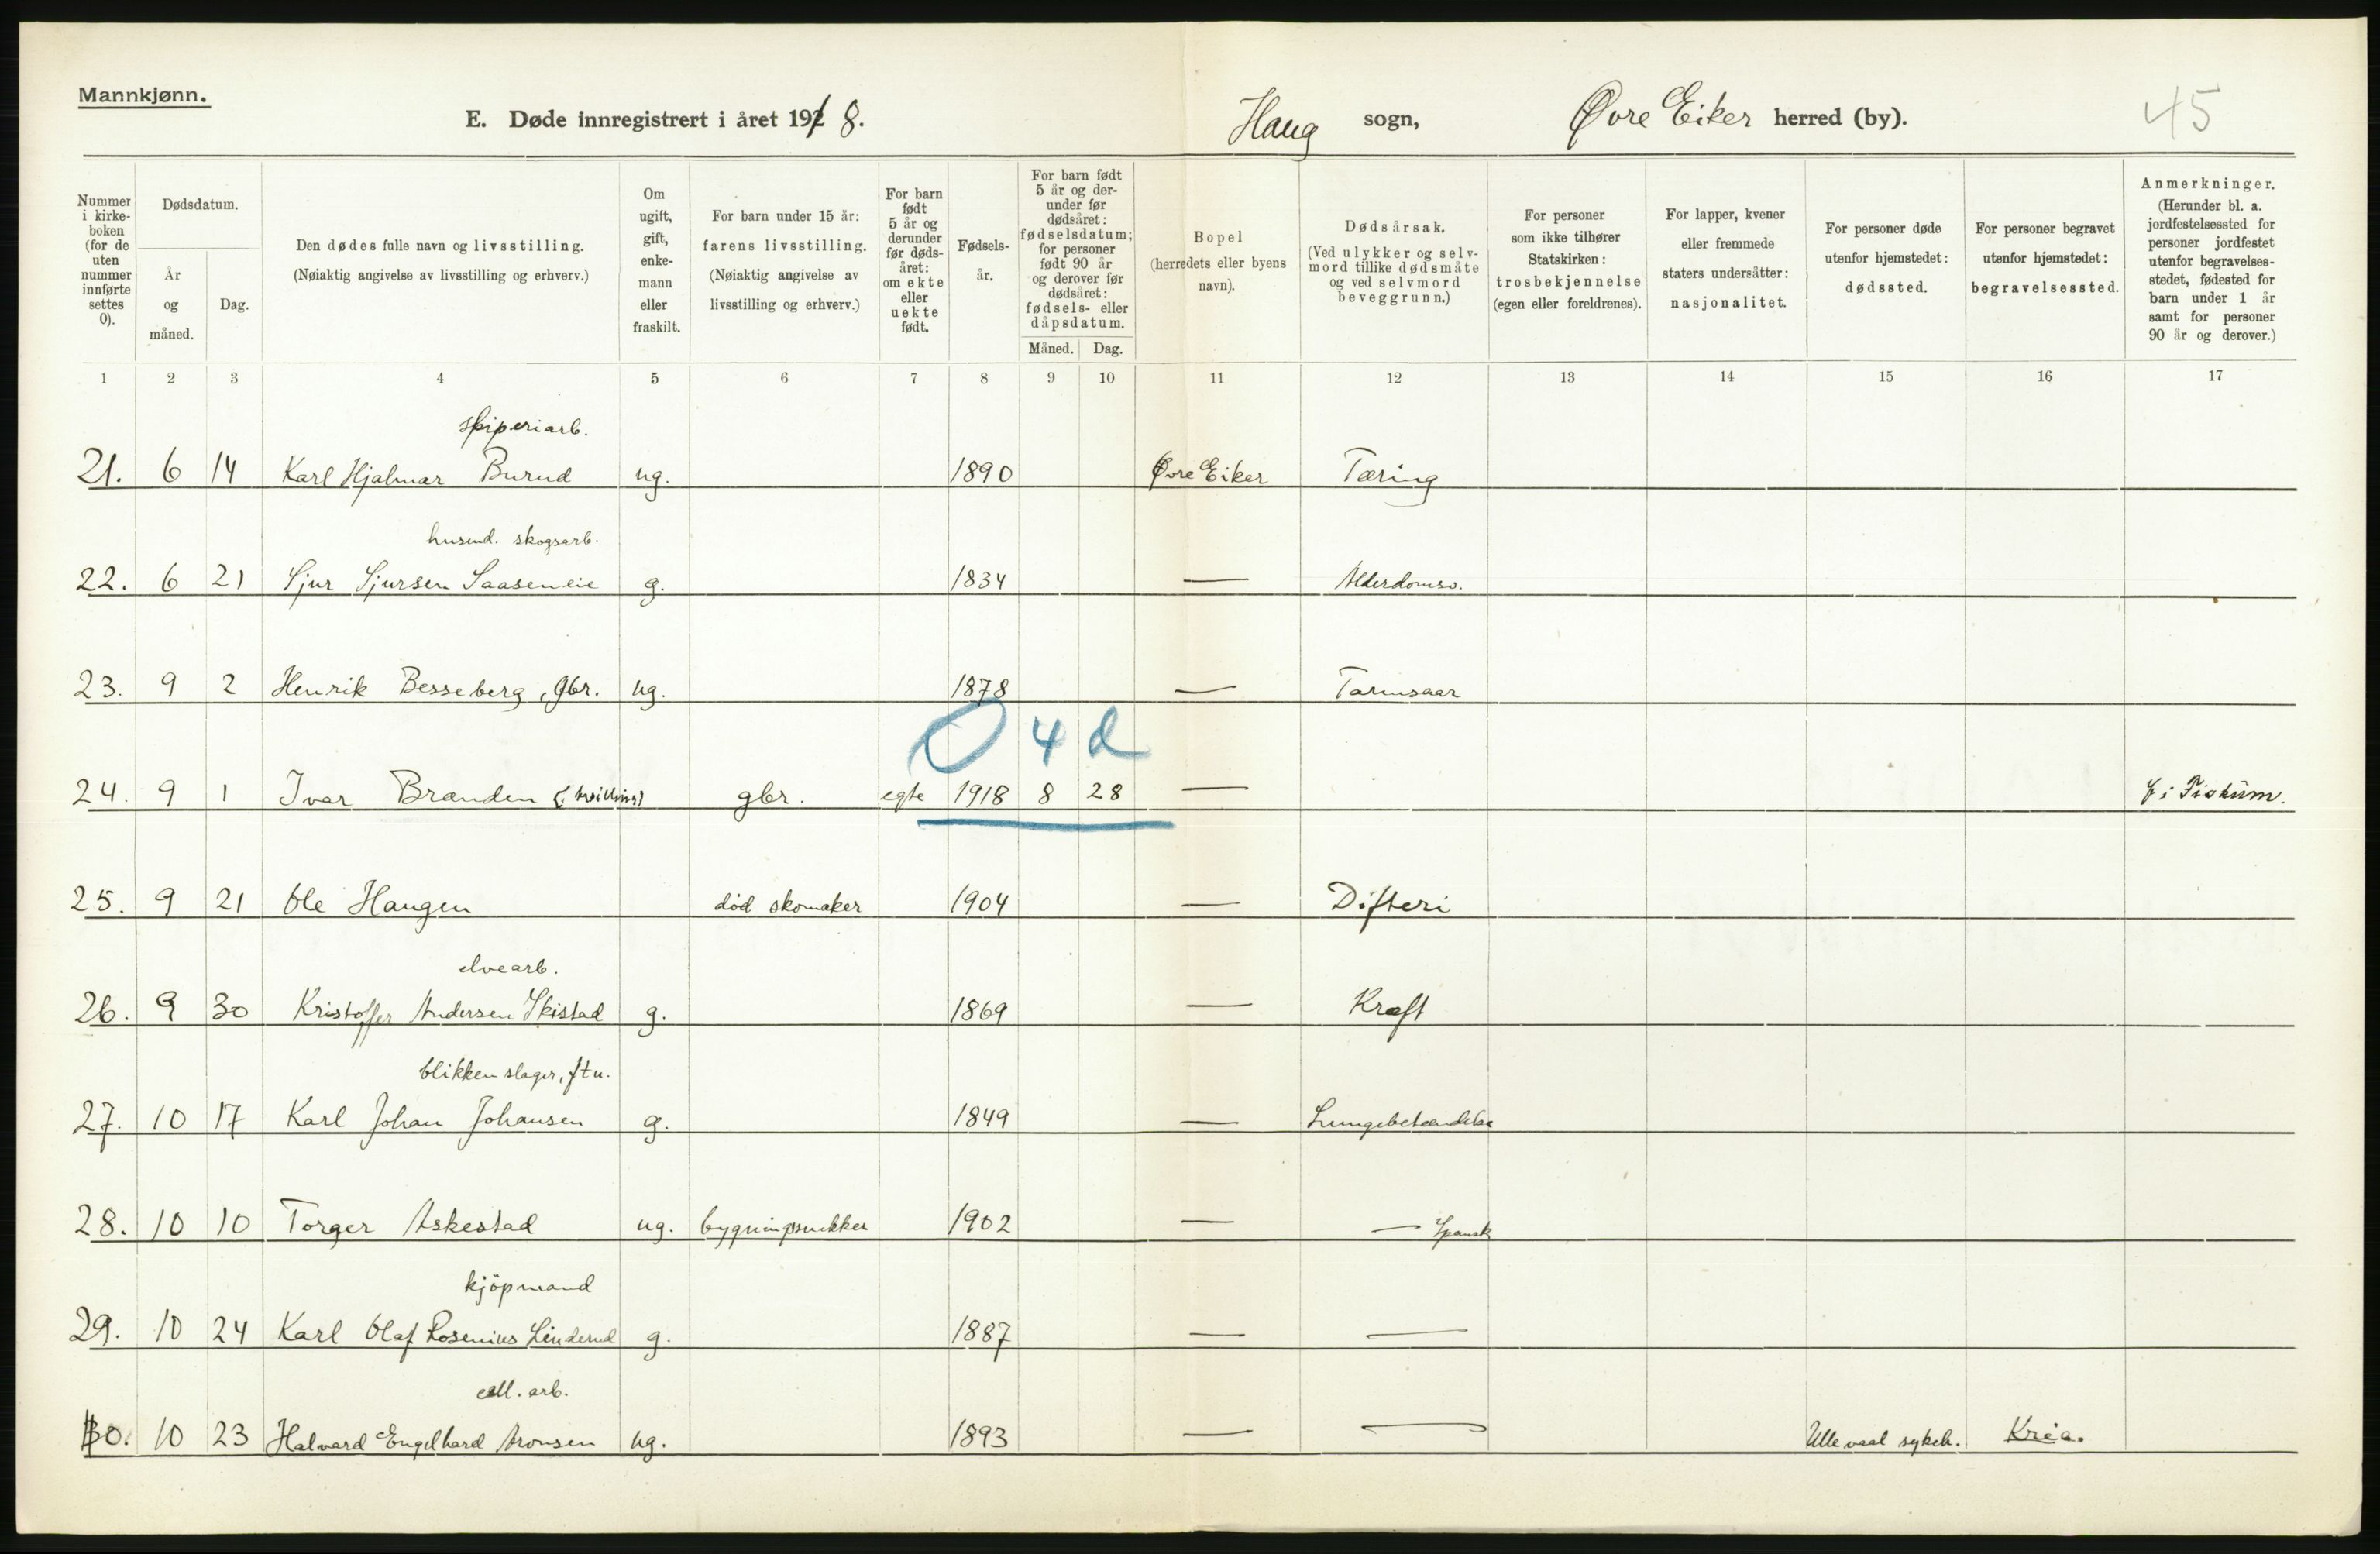 Mannkjønn.
E. Døde innregistrert i året 1918. Haug sogn, Øvre Eiker herred (by). 45
Nummer i kirke-boken (for de uten nummer innførte settes 0).
Dødsdatum.
År og måned.
Dag.
Den dødes fulle navn og livsstilling. (Nøiaktig angivelse av livsstilling og erhverv.)
Om ugift, gift, enke-mann eller fraskilt.
For barn under 15 år: farens livsstilling. (Nøiaktig angivelse av livsstilling og erhverv.)
For barn født 5 år og derunder før døds-året: om ekte eller uekte født.
Fødsels-år.
For barn født 5 år og der-under før dødsåret: fødselsdatum; for personer født 90 år og derover før dødsåret: fødsels- eller dåpsdatum.
Måned. Dag.
Bopel (herredets eller byens navn).
Dødsårsak. (Ved ulykker og selv-mord tillike dødsmåte og ved selvmord beveggrunn.)
For personer som ikke tilhører Statskirken: trosbekjennelse (egen eller foreldrenes).
For lapper, kvener eller fremmede staters undersåtter: nasjonalitet.
For personer døde utenfor hjemstedet: dødssted.
For personer begravet utenfor hjemstedet: begravelsessted.
Anmerkninger. (Herunder bl. a. jordfestelsessted for personer jordfestet utenfor begravelses-stedet, fødested for barn under 1 år samt for personer 90 år og derover.)
1 2 3 4 5 6 7 8 9 10 11 12 13 14 15 16 17
21. 6 14 Karl Hjalmar Burud ug. 1890 Øvre Eiker Tæring
husmd. skogsarb.
22. 6 21 Sjur Sjursen Saaseneie g. 1834 — Alderdomsv.
23. 9 2 Henrik Besseberg, gbr. ug. 1878 — Tarmsaar
0 4 d
24. 9 1 Ivar Brænden (tvilling) gbr. egte 1918 8 28 — f i Fiskum.
25. 9 21 Ole Haugen død skomaker 1904 — Difteri
elvearb.
26. 9 30 Kristoffer Andersen Skistad g. 1869 — Kræft
blikkenslager, ftu.
27. 10 17 Karl Johan Johansen g. 1849 — Lungebetændelse
28. 10 10 Torger Askestad ug. bygningssnekker 1902 — — Spansk
kjöpmand
29. 10 24 Karl Olaf Rosenius Linderud g. 1887 — —
cell. arb.
30. 10 23 Halvard Engelhard Aronsen ug. 1893 — — Ullevaal sykeh. Kria.